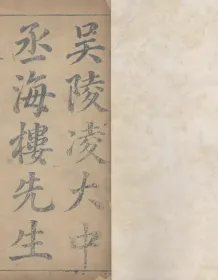 吴陵凌大中
丞海樓先生